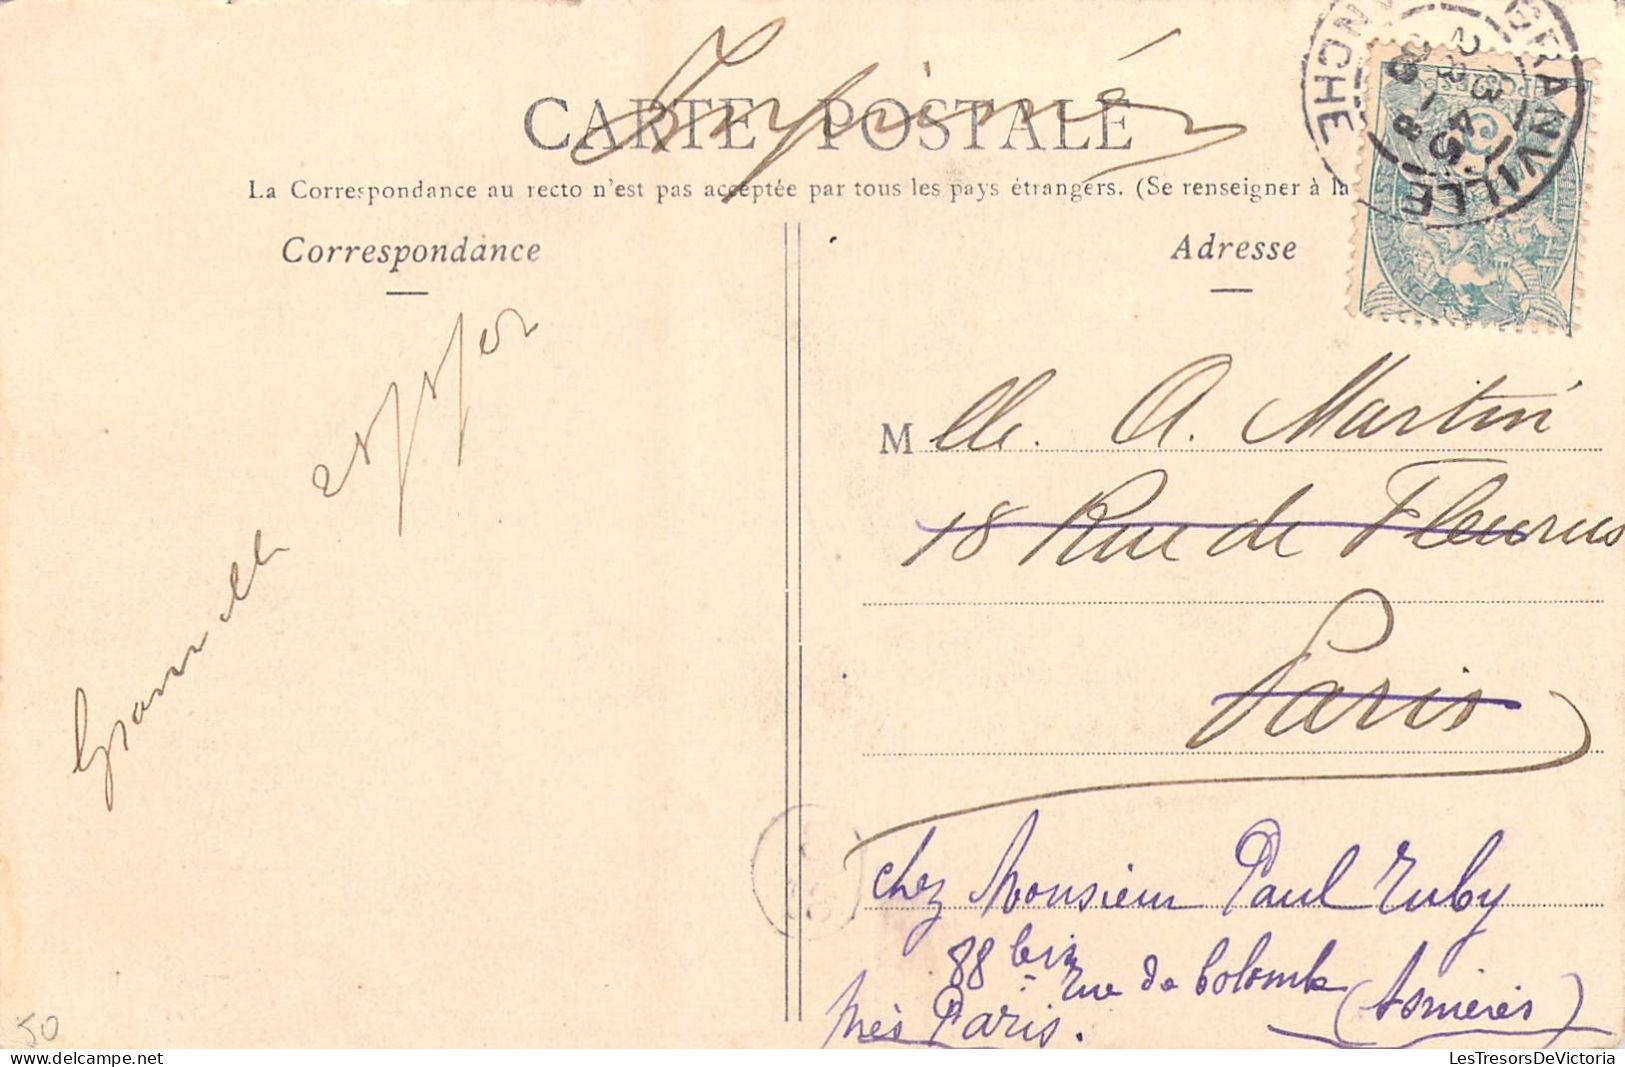 Imprimé
CARTE POSTALE
La Correspondance au recto n'est pas acceptée par tous les pays étrangers. (Se renseigner à la
Correspondance
Adresse
GRANVILLE
MANCHE
Granville
M lle. A. Martin
18 Rue de Fleurus
Paris
chez Monsieur Paul Ruby
88 bis rue de Colombe (Asnières)
Près Paris.
50
LesTresorsDeVictoria